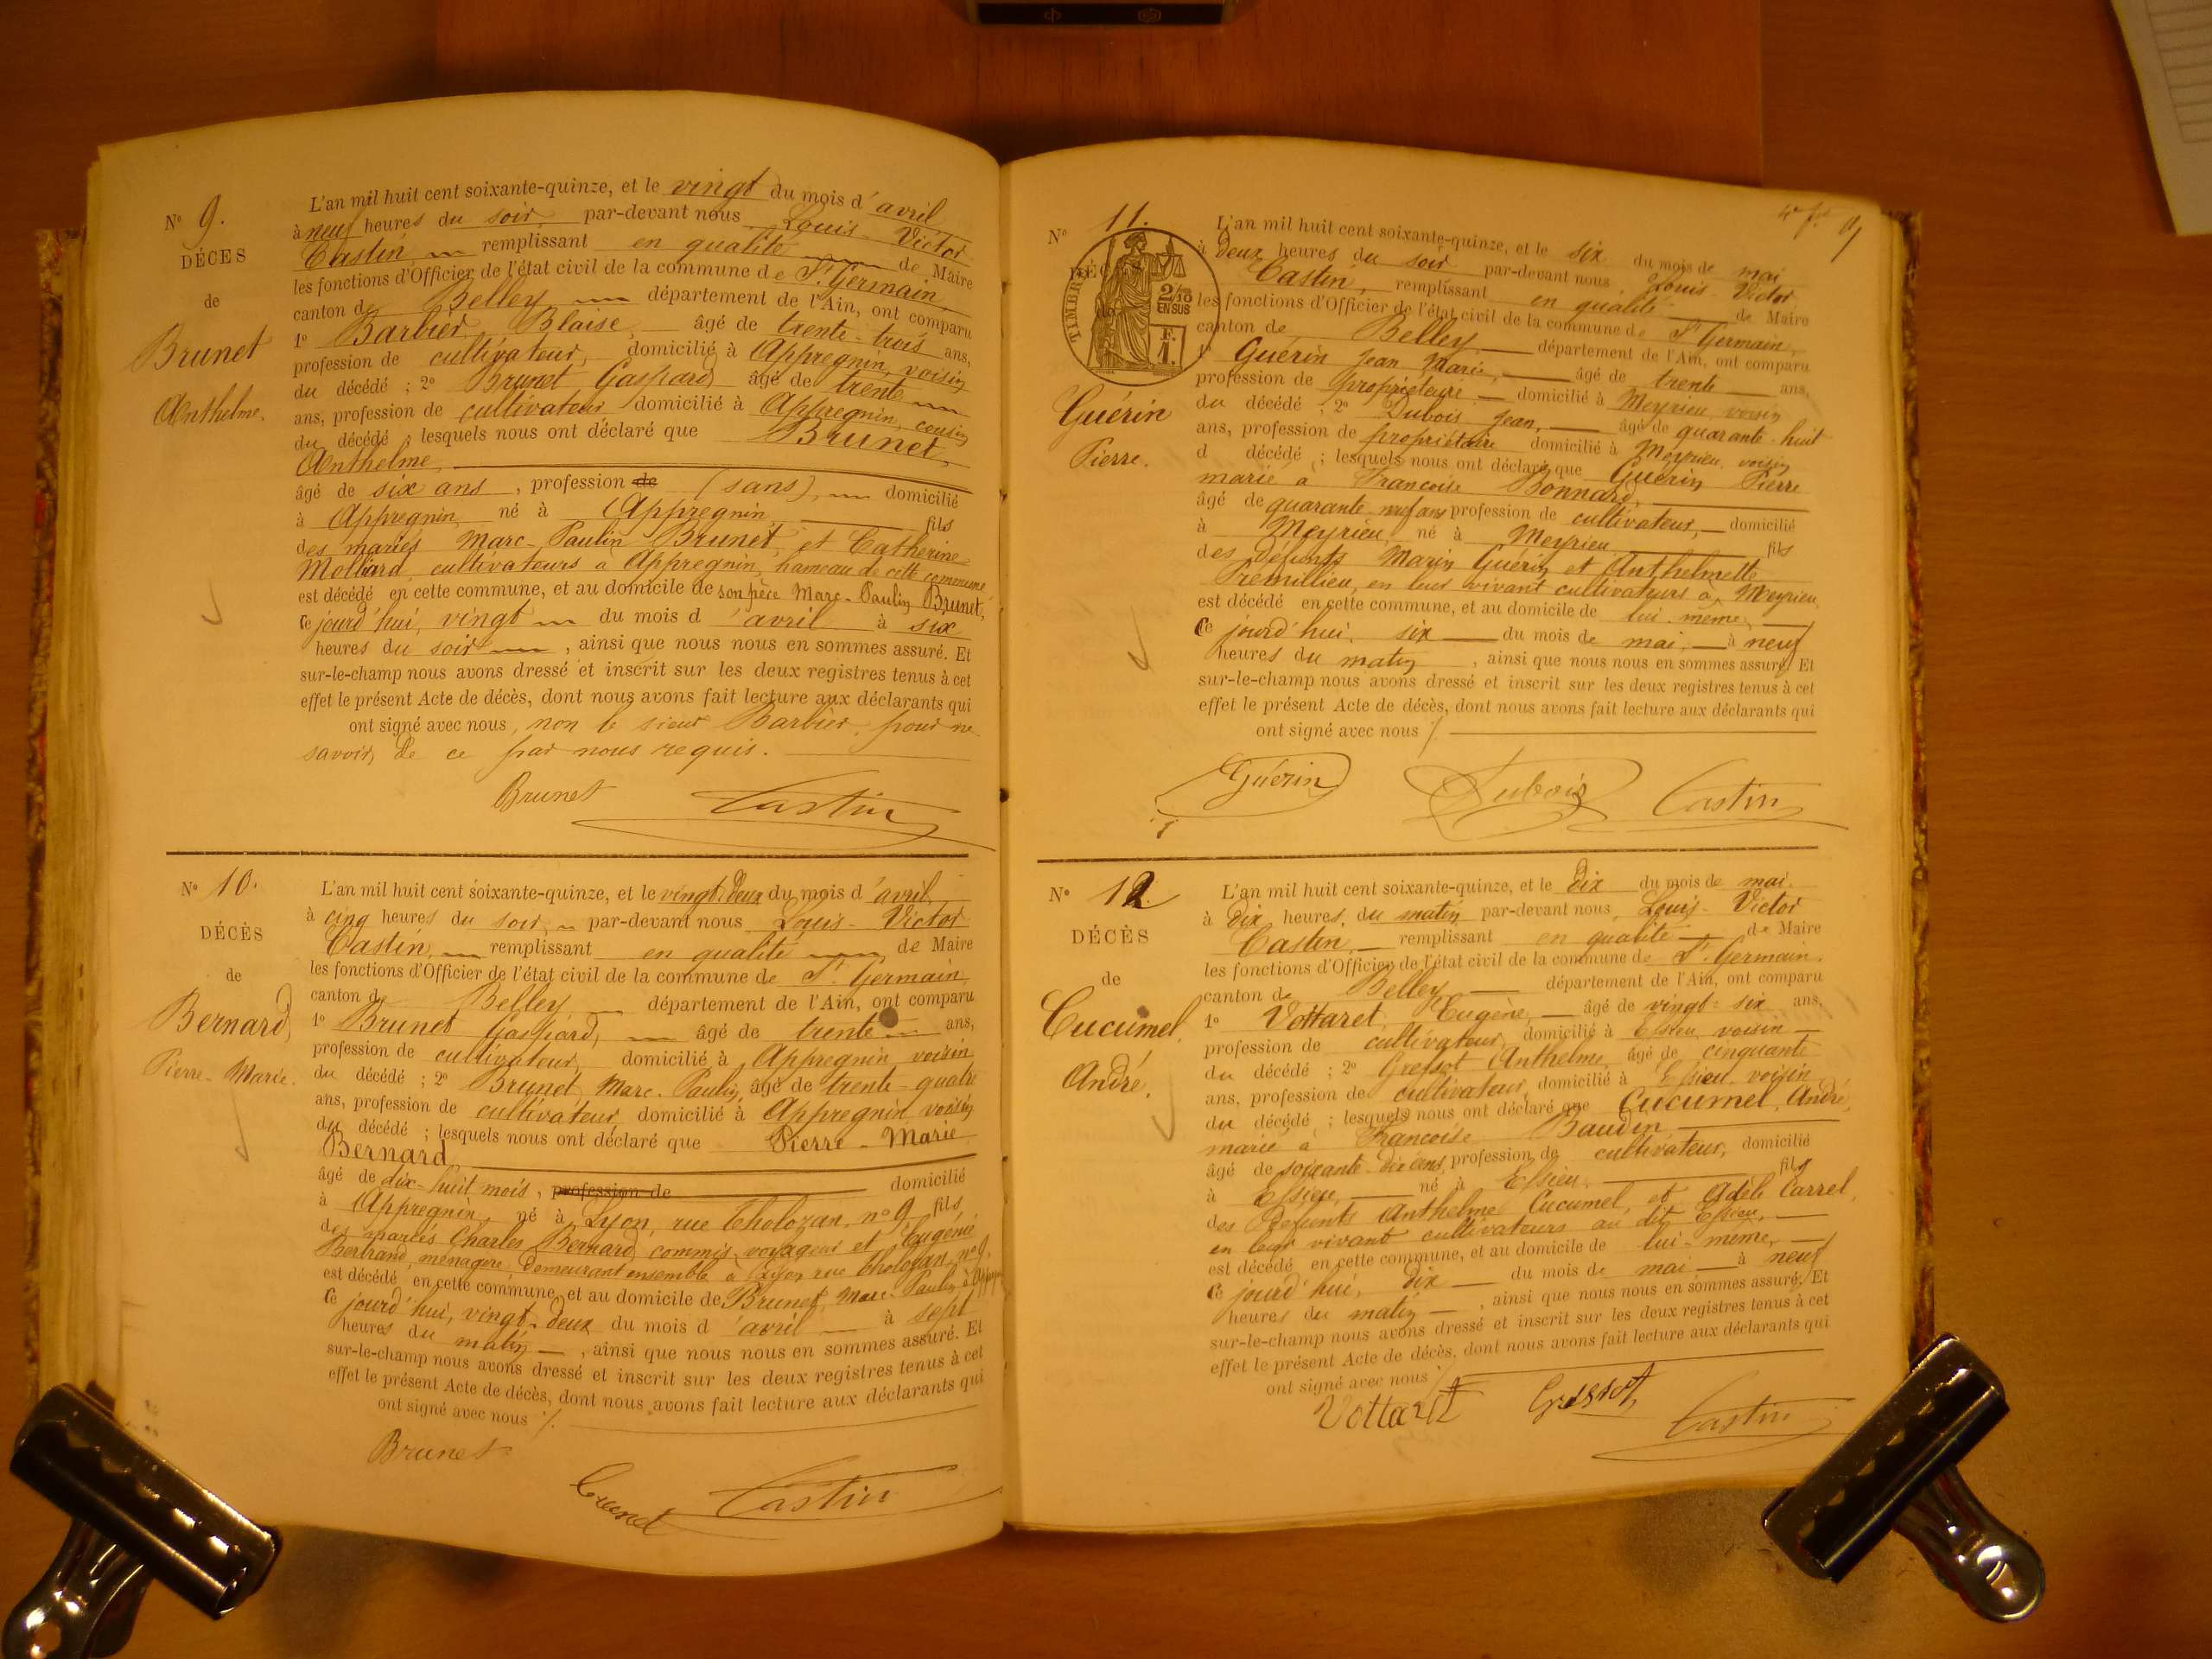 N° 9.
DÉCES
de
Brunet
Anthelme.
L'an mil huit cent soixante-quinze, et le vingt du mois d'avril
à neuf heures du soir par-devant nous Louis-Victor
Castin, remplissant en qualité de Maire
les fonctions d'Officier de l'état civil de la commune de St. Germain,
canton de Belley, département de l'Ain, ont comparu
1° Barbier, Blaise, âgé de trente-trois ans,
profession de cultivateur, domicilié à Appregnin, voisin
du décédé ; 2° Brunet Gaspard âgé de trente
ans, profession de cultivateur domicilié à Appregnin, cousin
du décédé ; lesquels nous ont déclaré que Brunet,
Anthelme,
âgé de six ans, profession de (sans), domicilié
à Appregnin, né à Appregnin fils
des mariés Marc-Paulin Brunet, et Catherine
Mollard, cultivateurs à Appregnin, hameau de cette commune,
est décédé en cette commune, et au domicile de son père Marc-Paulin Brunet,
Ce jourd'hui, vingt du mois d'avril à six
heures du soir, ainsi que nous nous en sommes assuré. Et
sur-le-champ nous avons dressé et inscrit sur les deux registres tenus à cet
effet le présent Acte de décès, dont nous avons fait lecture aux déclarants qui
ont signé avec nous, non le sieur Barbier, pour ne
savoir, de ce par nous requis.
Brunet Castin
N° 10.
DÉCÈS
de
Bernard,
Pierre-Marie.
L'an mil huit cent soixante-quinze, et le vingt-deux du mois d'avril
à cinq heures du soir par-devant nous Louis-Victor
Castin, remplissant en qualité de Maire
les fonctions d'Officier de l'état civil de la commune de St. Germain,
canton de Belley, département de l'Ain, ont comparu
1° Brunet Gaspard, âgé de trente ans,
profession de cultivateur, domicilié à Appregnin voisin
du décédé ; 2° Brunet, Marc-Paulin, âgé de trente-quatre
ans, profession de cultivateur, domicilié à Appregnin voisin
du décédé ; lesquels nous ont déclaré que Pierre-Marie
Bernard
âgé de dix-huit mois, profession de domicilié
à Appregnin, né à Lyon, rue Tholozan, n° 9 fils
des mariés Charles Bernard, commis voyageur et Eugénie
Bertrand, ménagère demeurant ensemble à Lyon rue Tholozan, n° 9,
est décédé en cette commune, et au domicile de Brunet, Marc-Paulin, à
Ce jourd'hui, vingt-deux du mois d'avril à sept
heures du matin, ainsi que nous nous en sommes assuré. Et
sur-le-champ nous avons dressé et inscrit sur les deux registres tenus à cet
effet le présent Acte de décès, dont nous avons fait lecture aux déclarants qui
ont signé avec nous ./.
Brunet
Brunet Castin
N° 11.
TIMBRE
2/10
EN SUS
F.
1.
de
Guérin
Pierre.
L'an mil huit cent soixante-quinze, et le six du mois de mai
à deux heures du soir par-devant nous Louis-Victor
Castin, remplissant en qualité de Maire
les fonctions d'Officier de l'état civil de la commune de St Germain,
canton de Belley, département de l'Ain, ont comparu
1° Guérin Jean Marie, âgé de trente ans,
profession de propriétaire, domicilié à Meyrieu, voisin
du décédé ; 2° Dubois Jean, âgé de quarante-huit
ans, profession de propriétaire domicilié à Meyrieu, voisin
d décédé ; lesquels nous ont déclaré que Guérin Pierre
marié à Françoise Bonnard,
âgé de quarante-neuf ans profession de cultivateur, domicilié
à Meyrieu, né à Meyrieu fils
des défunts Marin Guérin et Anthelmette
Premillieu, en leur vivant cultivateurs à Meyrieu,
est décédé en cette commune, et au domicile de lui-même,
Ce jourd'hui, six du mois de mai, à neuf
heures du matin, ainsi que nous nous en sommes assuré. Et
sur-le-champ nous avons dressé et inscrit sur les deux registres tenus à cet
effet le présent Acte de décès, dont nous avons fait lecture aux déclarants qui
ont signé avec nous ./.
Guérin Dubois Castin
N° 12.
DÉCÈS
de
Cucumel,
André.
L'an mil huit cent soixante-quinze, et le dix du mois de mai.
à dix heures du matin par-devant nous, Louis-Victor
Castin, remplissant en qualité de Maire
les fonctions d'Officier de l'état civil de la commune de St. Germain.
canton de Belley département de l'Ain, ont comparu
1° Vottaret, Eugène, âgé de vingt-six ans,
profession de cultivateur, domicilié à Essieu, voisin
du décédé ; 2° Gressot Anthelme, âgé de cinquante
ans, profession de cultivateur, domicilié à Essieu, voisin
du décédé ; lesquels nous ont déclaré que Cucumel, André,
marié à Françoise Baudin,
âgé de soixante-dix ans, profession de cultivateur, domicilié
à Essieu, né à Essieu fils
des défunts Anthelme Cucumel, et Adèle Carrel,
en leur vivant cultivateurs au dit Essieu,
est décédé en cette commune, et au domicile de lui-même,
Ce jourd'hui, dix du mois de mai à neuf
heures du matin, ainsi que nous nous en sommes assuré. Et
sur-le-champ nous avons dressé et inscrit sur les deux registres tenus à cet
effet le présent Acte de décès, dont nous avons fait lecture aux déclarants qui
ont signé avec nous ./.
Vottaret Gressot Castin